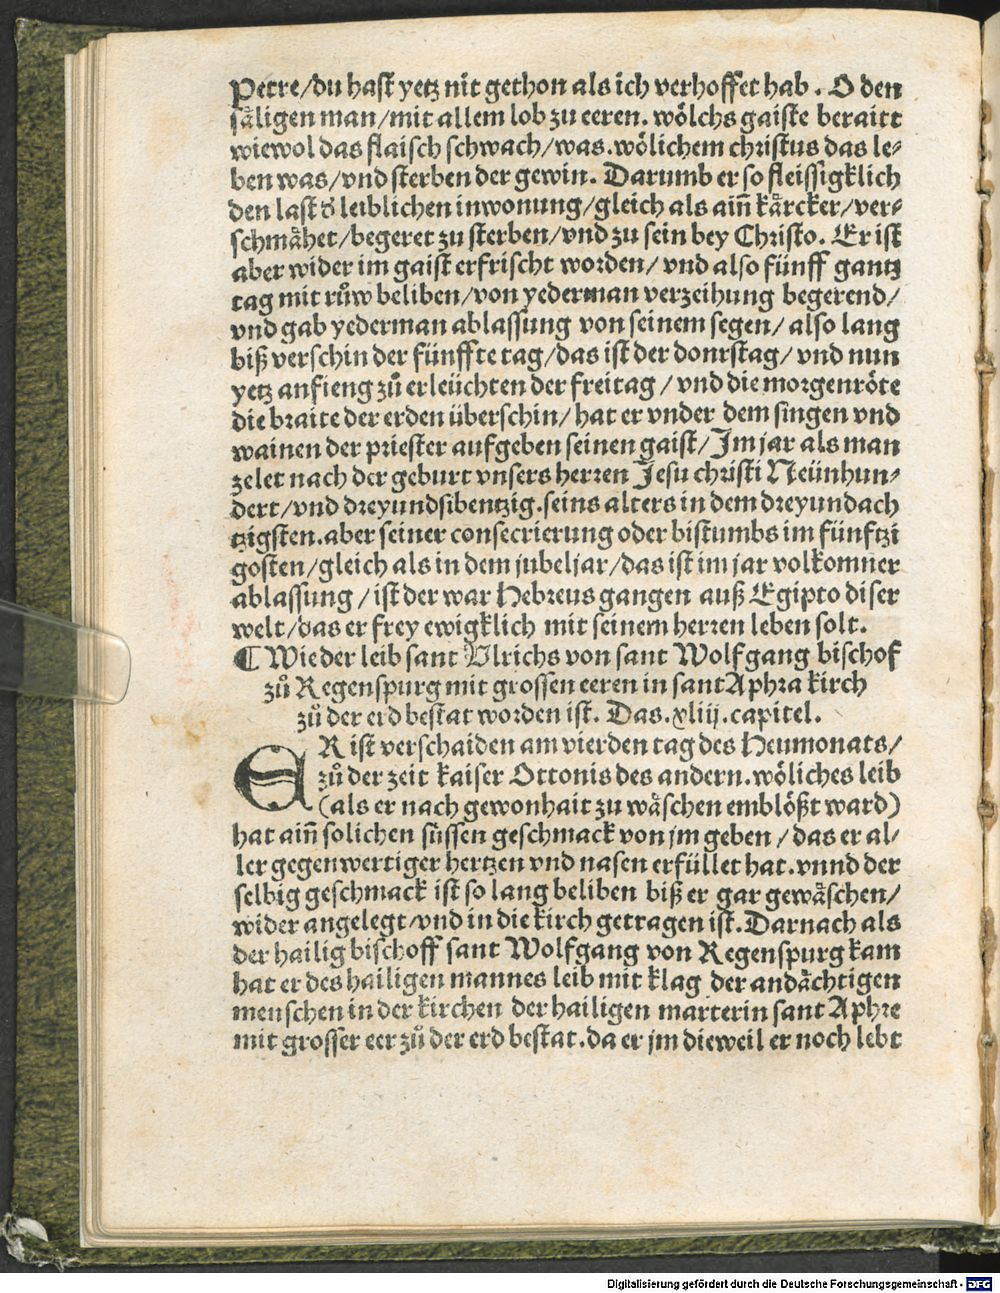 Petre/du hast yetz nit gethon als ich verhoffet hab. O den
såligen man/mit allem lob zu eeren. wölchs gaiste beraitt
wiewol das flaisch schwach/was. wölichem christus das le⸗
ben was/vnd sterben der gewin. Darumb er so fleissigklich
den last d̕ leiblichen inwonung/gleich als ain̄ kårcker/ver⸗
schmåhet/begeret zu sterben/vnd zu sein bey Christo. Er ist
aber wider im gaist erfrischt worden/vnd also fünff gantz
tag mit růw beliben/von yederman verzeihung begerend/
vnd gab yederman ablassung von seinem segen/also lang
biß verschin der fünffte tag/das ist der donrstag/vnd nun
yetz anfieng zů erleüchten der freitag/vnd die morgenröte
die braite der erden überschin/hat er vnder dem singen vnd
wainen der priester aufgeben seinen gaist/Im jar als man
zelet nach der geburt vnsers herren Jesu christi Neünhun⸗
dert/vnd dreyundsibentzig. seins alters in dem dreyundach
tzigsten. aber seiner consecrierung oder bistumbs im fünftzi
gosten/gleich als in dem jubeljar/das ist im jar volkomner
ablassung/ist der war Hebreus gangen auß Egipto diser
welt/das er frey ewigklich mit seinem herren leben solt.
¶ Wie der leib sant Vlrichs von sant Wolfgang bischof
zů Regenspurg mit grossen eeren in sant Aphra kirch
zů der erd bestat worden ist. Das. xliij. capitel.
ER ist verschaiden am vierden tag des Heumonats/
zů der zeit kaiser Ottonis des andern. wöliches leib
(als er nach gewonhait zu wåschen emblößt ward)
hat ain̄ solichen süssen geschmack von jm geben/das er al⸗
ler gegenwertiger hertzen vnd nasen erfüllet hat. vnnd der
selbig geschmack ist so lang beliben biß er gar gewåschen/
wider angelegt/vnd in die kirch getragen ist. Darnach als
der hailig bischoff sant Wolfgang von Regenspurg kam
hat er des hailigen mannes leib mit klag der andåchtigen
menschen in der kirchen der hailigen marterin sant Aphre
mit grosser eer zů der erd bestat. da er jm dieweil er noch lebt
Digitalisierung gefördert durch die Deutsche Forschungsgemeinschaft - DFG